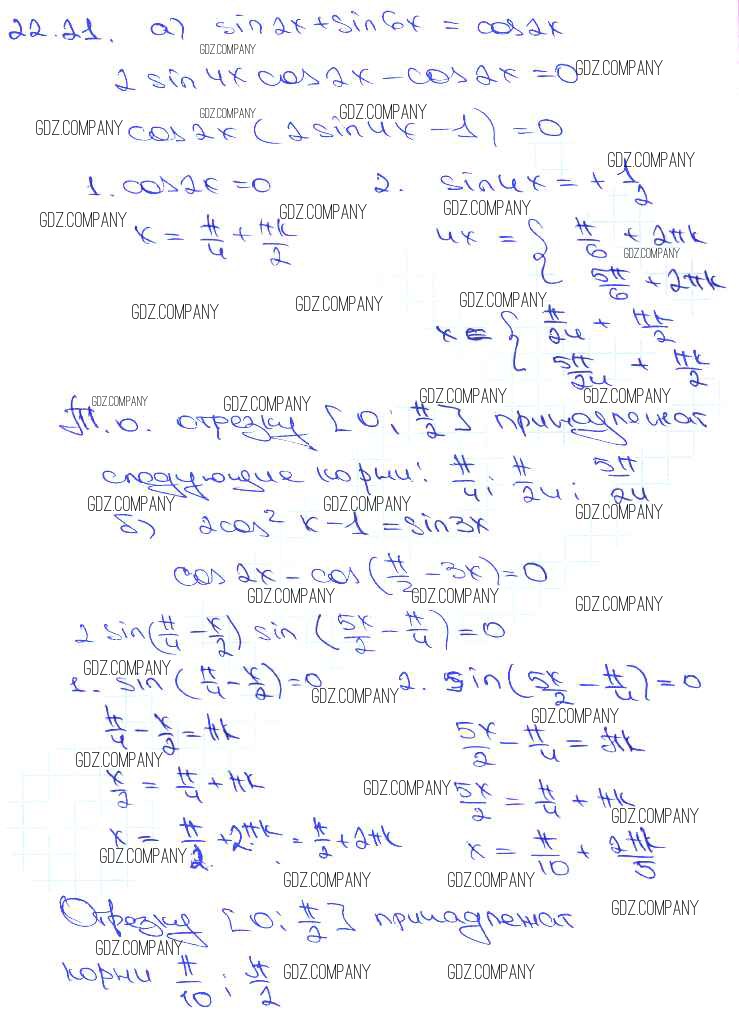 22.21. а) sin2x + sin6x = cos2x
GDZ.COMPANY
2 sin4x cos2x - cos2x = 0 GDZ.COMPANY
GDZ.COMPANY GDZ.COMPANY
GDZ.COMPANY cos2x (2sin4x - 1) = 0
GDZ.COMPANY
1. cos2x = 0 2. sin4x = + 1/2
GDZ.COMPANY GDZ.COMPANY GDZ.COMPANY
x = π/4 + πk/2 4x = { π/6 + 2πk
GDZ.COMPANY
5π/6 + 2πk
GDZ.COMPANY GDZ.COMPANY GDZ.COMPANY
x = { π/24 + πk/2
5π/24 + πk/2
GDZ.COMPANY GDZ.COMPANY GDZ.COMPANY GDZ.COMPANY
Т.о. отрезку [0; π/2] принадлежат
следующие корни: π/4; π/24; 5π/24
GDZ.COMPANY GDZ.COMPANY GDZ.COMPANY
б) 2cos² x - 1 = sin3x
cos2x - cos(π/2 - 3x) = 0
GDZ.COMPANY GDZ.COMPANY GDZ.COMPANY
2 sin(π/4 - x/2) sin (5x/2 - π/4) = 0
GDZ.COMPANY
1. sin (π/4 - x/2) = 0 2. sin(5x/2 - π/4) = 0
GDZ.COMPANY GDZ.COMPANY
π/4 - x/2 = πk 5x/2 - π/4 = πk
GDZ.COMPANY
x/2 = π/4 + πk GDZ.COMPANY 5x/2 = π/4 + πk
GDZ.COMPANY
x = π/2 + 2πk = π/2 + 2πk x = π/10 + 2πk/5
GDZ.COMPANY
GDZ.COMPANY GDZ.COMPANY
Отрезку [0; π/2] принадлежат GDZ.COMPANY
GDZ.COMPANY
корни π/10; π/2 GDZ.COMPANY GDZ.COMPANY